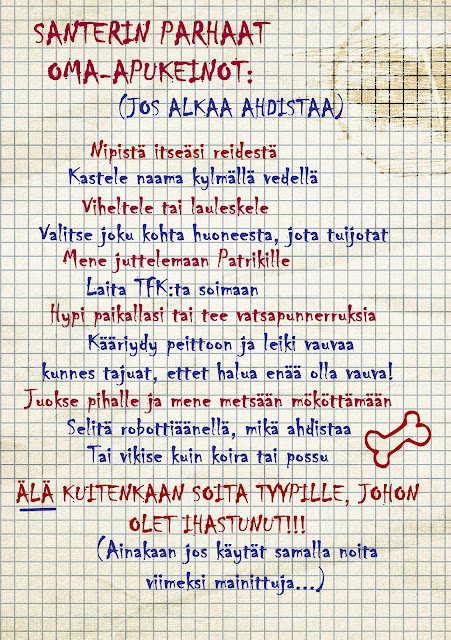 SANTERIN PARHAAT
OMA-APUKEINOT:
(JOS ALKAA AHDISTAA)
Nipistä itseäsi reidestä
Kastele naama kylmällä vedellä
Viheltele tai lauleskele
Valitse joku kohta huoneesta, jota tuijotat
Mene juttelemaan Patrikille
Laita TFK:ta soimaan
Hypi paikallasi tai tee vatsapunnerruksia
Kääriydy peittoon ja leiki vauvaa
kunnes tajuat, ettet halua enää olla vauva!
Juokse pihalle ja mene metsään mököttämään
Selitä robottiäänellä, mikä ahdistaa
Tai vikise kuin koira tai possu
ÄLÄ KUITENKAAN SOITA TYYPILLE, JOHON
OLET IHASTUNUT!!!
(Ainakaan jos käytät samalla noita
viimeksi mainittuja...)